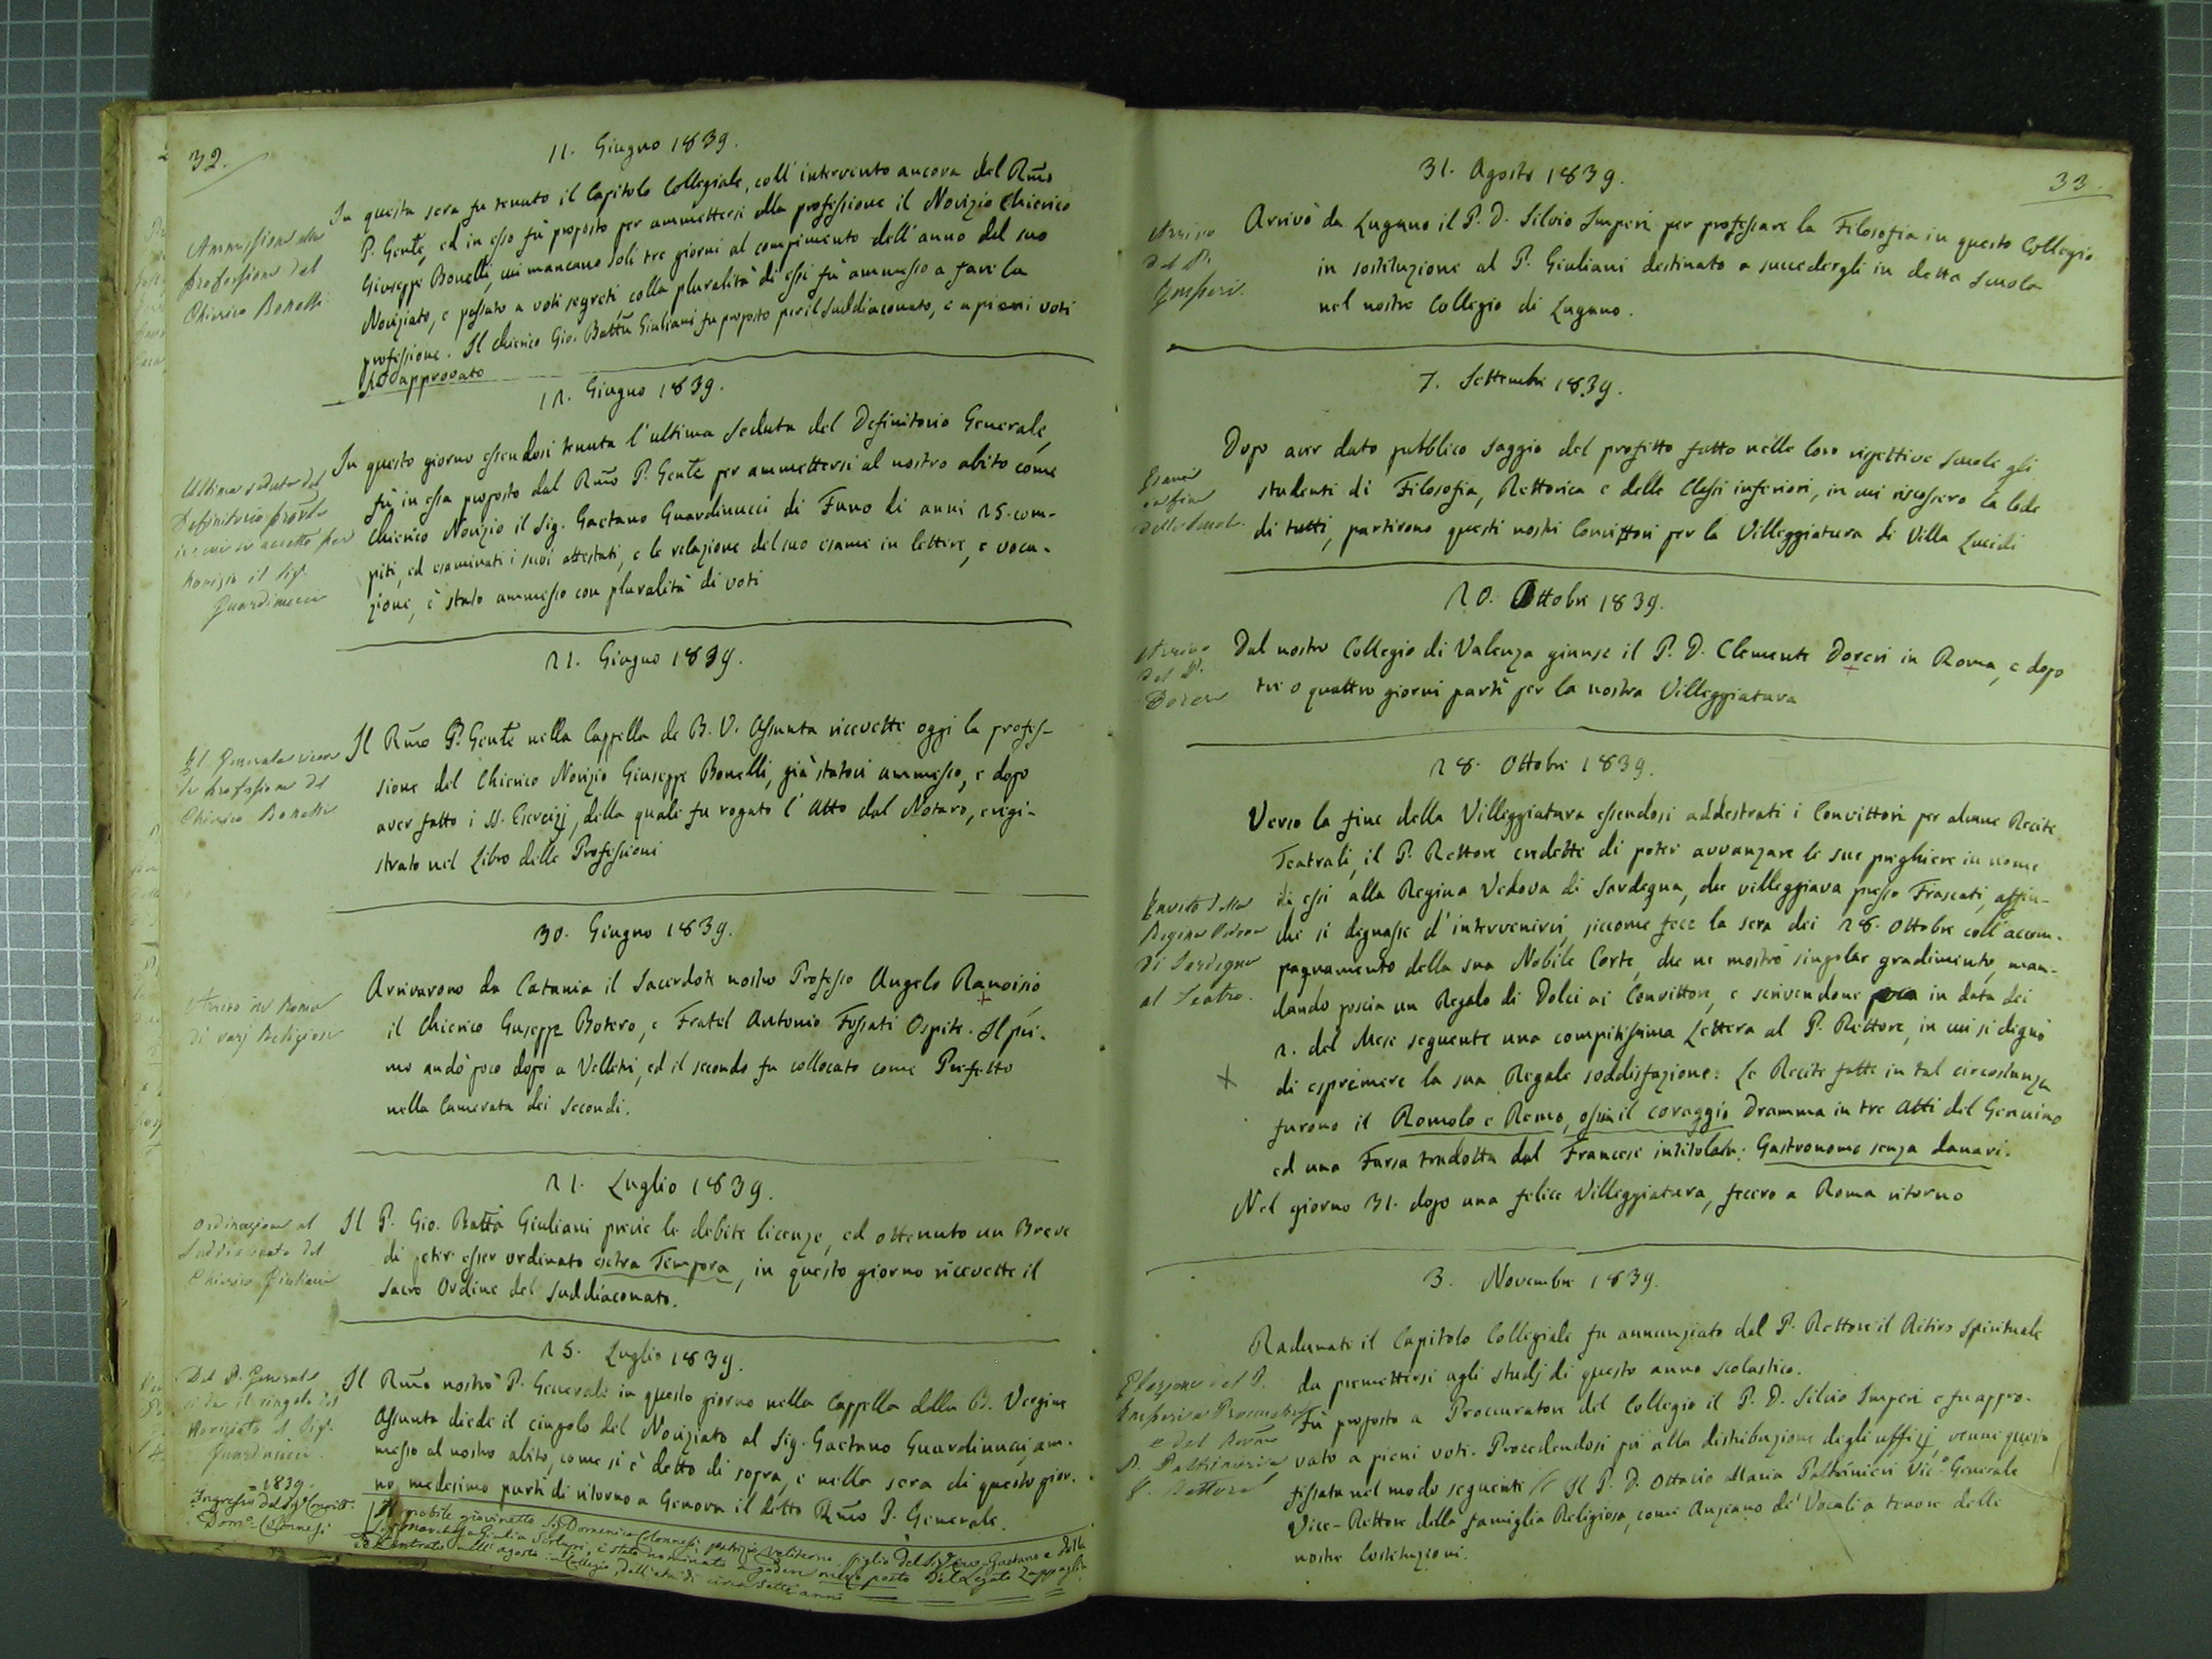 32.
11. Giugno 1839.
Ammissione alla
professione del
Chierico Bonelli
In questa sera fu tenuto il Capitolo Collegiale, coll'intervento ancora del Rmo
P. Gente, ed in esso fù proposto per ammettersi alla professione il Novizio Chierico
Giuseppe Bonelli, cui mancano soli tre giorni al compimento dell'anno del suo
Noviziato, e passato a voti segreti colla pluralità di essi fù ammesso a fare la
professione. Il chierico Gio. Batta Giuliani fu proposto per il Suddiaconato, e a pieni voti
approvato
12. Giugno 1839.
Ultima seduta del
Definitorio
in cui si accetta per
Novizio il Sig.
Guardinucci
In questo giorno essendosi tenuta l'ultima Seduta del Definitorio Generale,
fù in essa proposto dal Rmo P. Gente per ammettersi al nostro abito come
Chierico Novizio il Sig. Gaetano Guardinucci di Fano di anni 25. com-
piti, ed esaminati i suoi attestati, e la relazione del suo esame in lettere, e voca-
zione, è stato ammesso con pluralità di voti
21. Giugno 1839.
Il Generale riceve
la professione del
Chierico Bonelli
Il Rmo P. Gente nella Cappella de B. V. Assunta ricevette oggi la profes-
sione del Chierico Novizio Giuseppe Bonelli, già statovi ammesso, e dopo
aver fatto i SS. Esercizj, della quale fu rogato l'Atto dal Notaro, e regi-
strato nel Libro delle Professioni
30. Giugno 1839.
Arrivo in Roma
di varj Religiosi
Arrivarono da Catania il Sacerdote nostro Professo Angelo Ranoisio
il Chierico Guseppe Botero, e Fratel Antonio Fossati Ospite. Il pri-
mo andò poco dopo a Velletri, ed il secondo fu collocato come Prefetto
nella Camerata dei Secondi.
21. Luglio 1839.
Ordinazione al
Suddiaconato del
Chierico Giuliani
Il P. Gio. Batta Giuliani previe le debite licenze, ed ottenuto un Breve
di poter esser ordinato extra Tempora, in questo giorno ricevette il
Sacro Ordine del Suddiaconato.
25. Luglio 1839.
Dal P. Generale
si dà il cingolo del
Noviziato al Sig.
Guardinucci
Il Rmo nostro P. Generale in questo giorno nella Cappella della B. Vergine
Assunta diede il cingolo del Noviziato al Sig. Gaetano Guardinucci, am-
messo al nostro abito, come si è detto di sopra, e nella sera di questo gior-
no medesimo partì di ritorno a Genova il detto Rmo P. Generale.
= 1839 =
Ingresso del Sigr Convitt.
Domo Colonnesi
Il nobile giovinetto Sigr Domenico Colonnesi patrizio veliterno, figlio del Sigr Cav. Gaetano e della
Sigra Marchesa Giulia è stato nominato a godere mezzo posto del Legato Zappaglia
ed è entrato nell'agosto in Collegio, dell'età di circa sette anni
33.
31. Agosto 1839.
Arrivo
del P.
Imperi.
Arrivò da Lugano il P. D. Silvio Imperi per professare la Filosofia in questo Collegio
in sostituzione al P. Giuliani destinato a succedergli in detta Scuola
nel nostro Collegio di Lugano.
7. Settembre 1839.
Esami
in fine
delle Scuole.
Dopo aver dato pubblico saggio del profitto fatto nelle loro rispettive Scuole gli
studenti di Filosofia, Rettorica e delle Classi inferiori, in cui riscossero la lode
di tutti, partirono questi nostri Convittori per la Villeggiatura di Villa Lucidi
20. Ottobre 1839.
Arrivo
del P.
Doreri
Dal nostro Collegio di Valenza giunse il P. D. Clemente Doreri in Roma, e dopo
tre o quattro giorni partì per la nostra Villeggiatura
28. Ottobre 1839.
Invito della
Regina Vedova
di Sardegna
al Teatro.
Verso la fine della Villeggiatura essendosi addestrati i Convittori per alcune Recite
Teatrali, il P. Rettore credette di poter avvanzare le sue preghiere in nome
di essi alla Regina Vedova di Sardegna, che villeggiava presso Frascati, affin-
chè si degnasse d'intervenirvi, siccome fece la sera dei 28. Ottobre coll'accom-
pagnamento della sua Nobile Corte, che ne mostrò singolar gradimento, man-
dando poscia un Regalo di Dolci ai Convittori, e scrivendone in data dei
2. del Mese seguente una compitissima Lettera al P. Rettore, in cui si degnò
X di esprimere la sua Regale soddisfazione: Le Recite fatte in tal circostanza
furono il Romolo e Remo, ossia il coraggio Dramma in tre Atti del Genuino
ed una Farsa tradotta dal Francese intitolata: Gastronomo senza danari.
Nel giorno 31. dopo una felice Villeggiatura, fecero a Roma ritorno
3. Novembre 1839.
Elezione del P.
Imperi a Procuratore
e del Revmo
P. Paltrinieri a
V. Rettore
Radunati il Capitolo Collegiale fu annunziato dal P. Rettore il Ritiro Spirituale
da premettersi agli studj di questo anno scolastico.
Fù proposto a Proccuratore del Collegio il P. D. Silvio Imperi e fu appro-
vato a pieni voti. Procedendosi poi alla distribuzione degli uffizj, venne questa
fissata nel modo seguente Il P. D. Ottavio Maria Paltrinieri Vico Generale
Vice-Rettore della famiglia Religiosa, come Anziano de' Vocali a tenore delle
nostre Costituzioni.